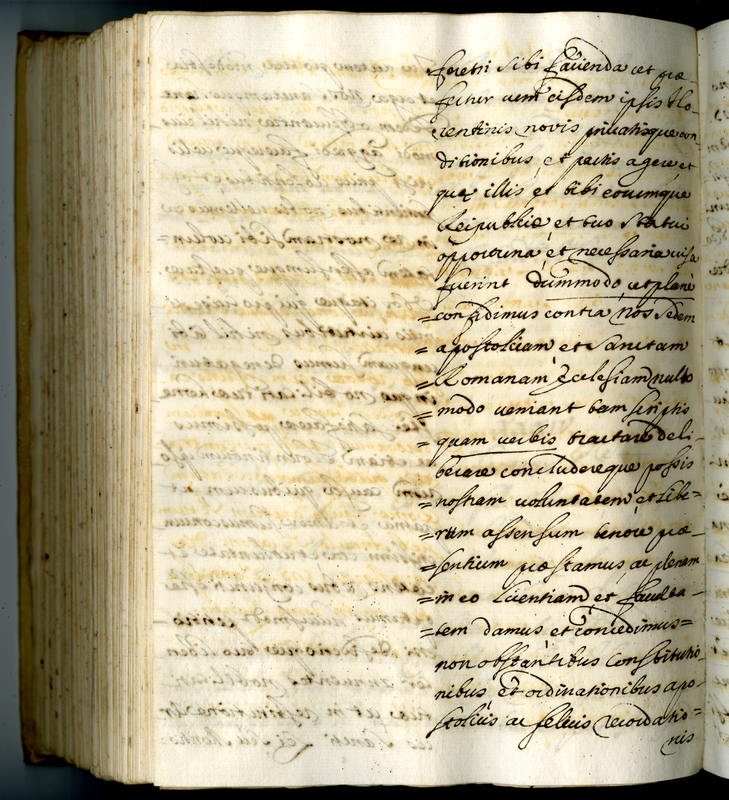 foretri sibi favenda et præ-
fertur vem eisdem ipsis Flo-
rentinis novis privatisque con-
ditionibus, et pactis agere et
quæ illis et tibi eorumque
Reipublicæ et tuo statui
opportuna et necessaria visa
fuerint dummodo, ut plane
=confidimus contra nos sedem
=apostolicam et sanctam
=Romanam Ecclesiam nullo
=modo veniant tam scriptis
=quam verbis tractare deli-
berare concludereque possis
=nostram voluntatem et libe=
=rum assensum tenore præ-
=sentium præstamus ac plenam
=in eo licentiam et faculta-
=tem damus et concedimus=
non obstantibus constitutio-
nibus, et ordinationibus apo-
stolicis ac felicis recordatio=
nis